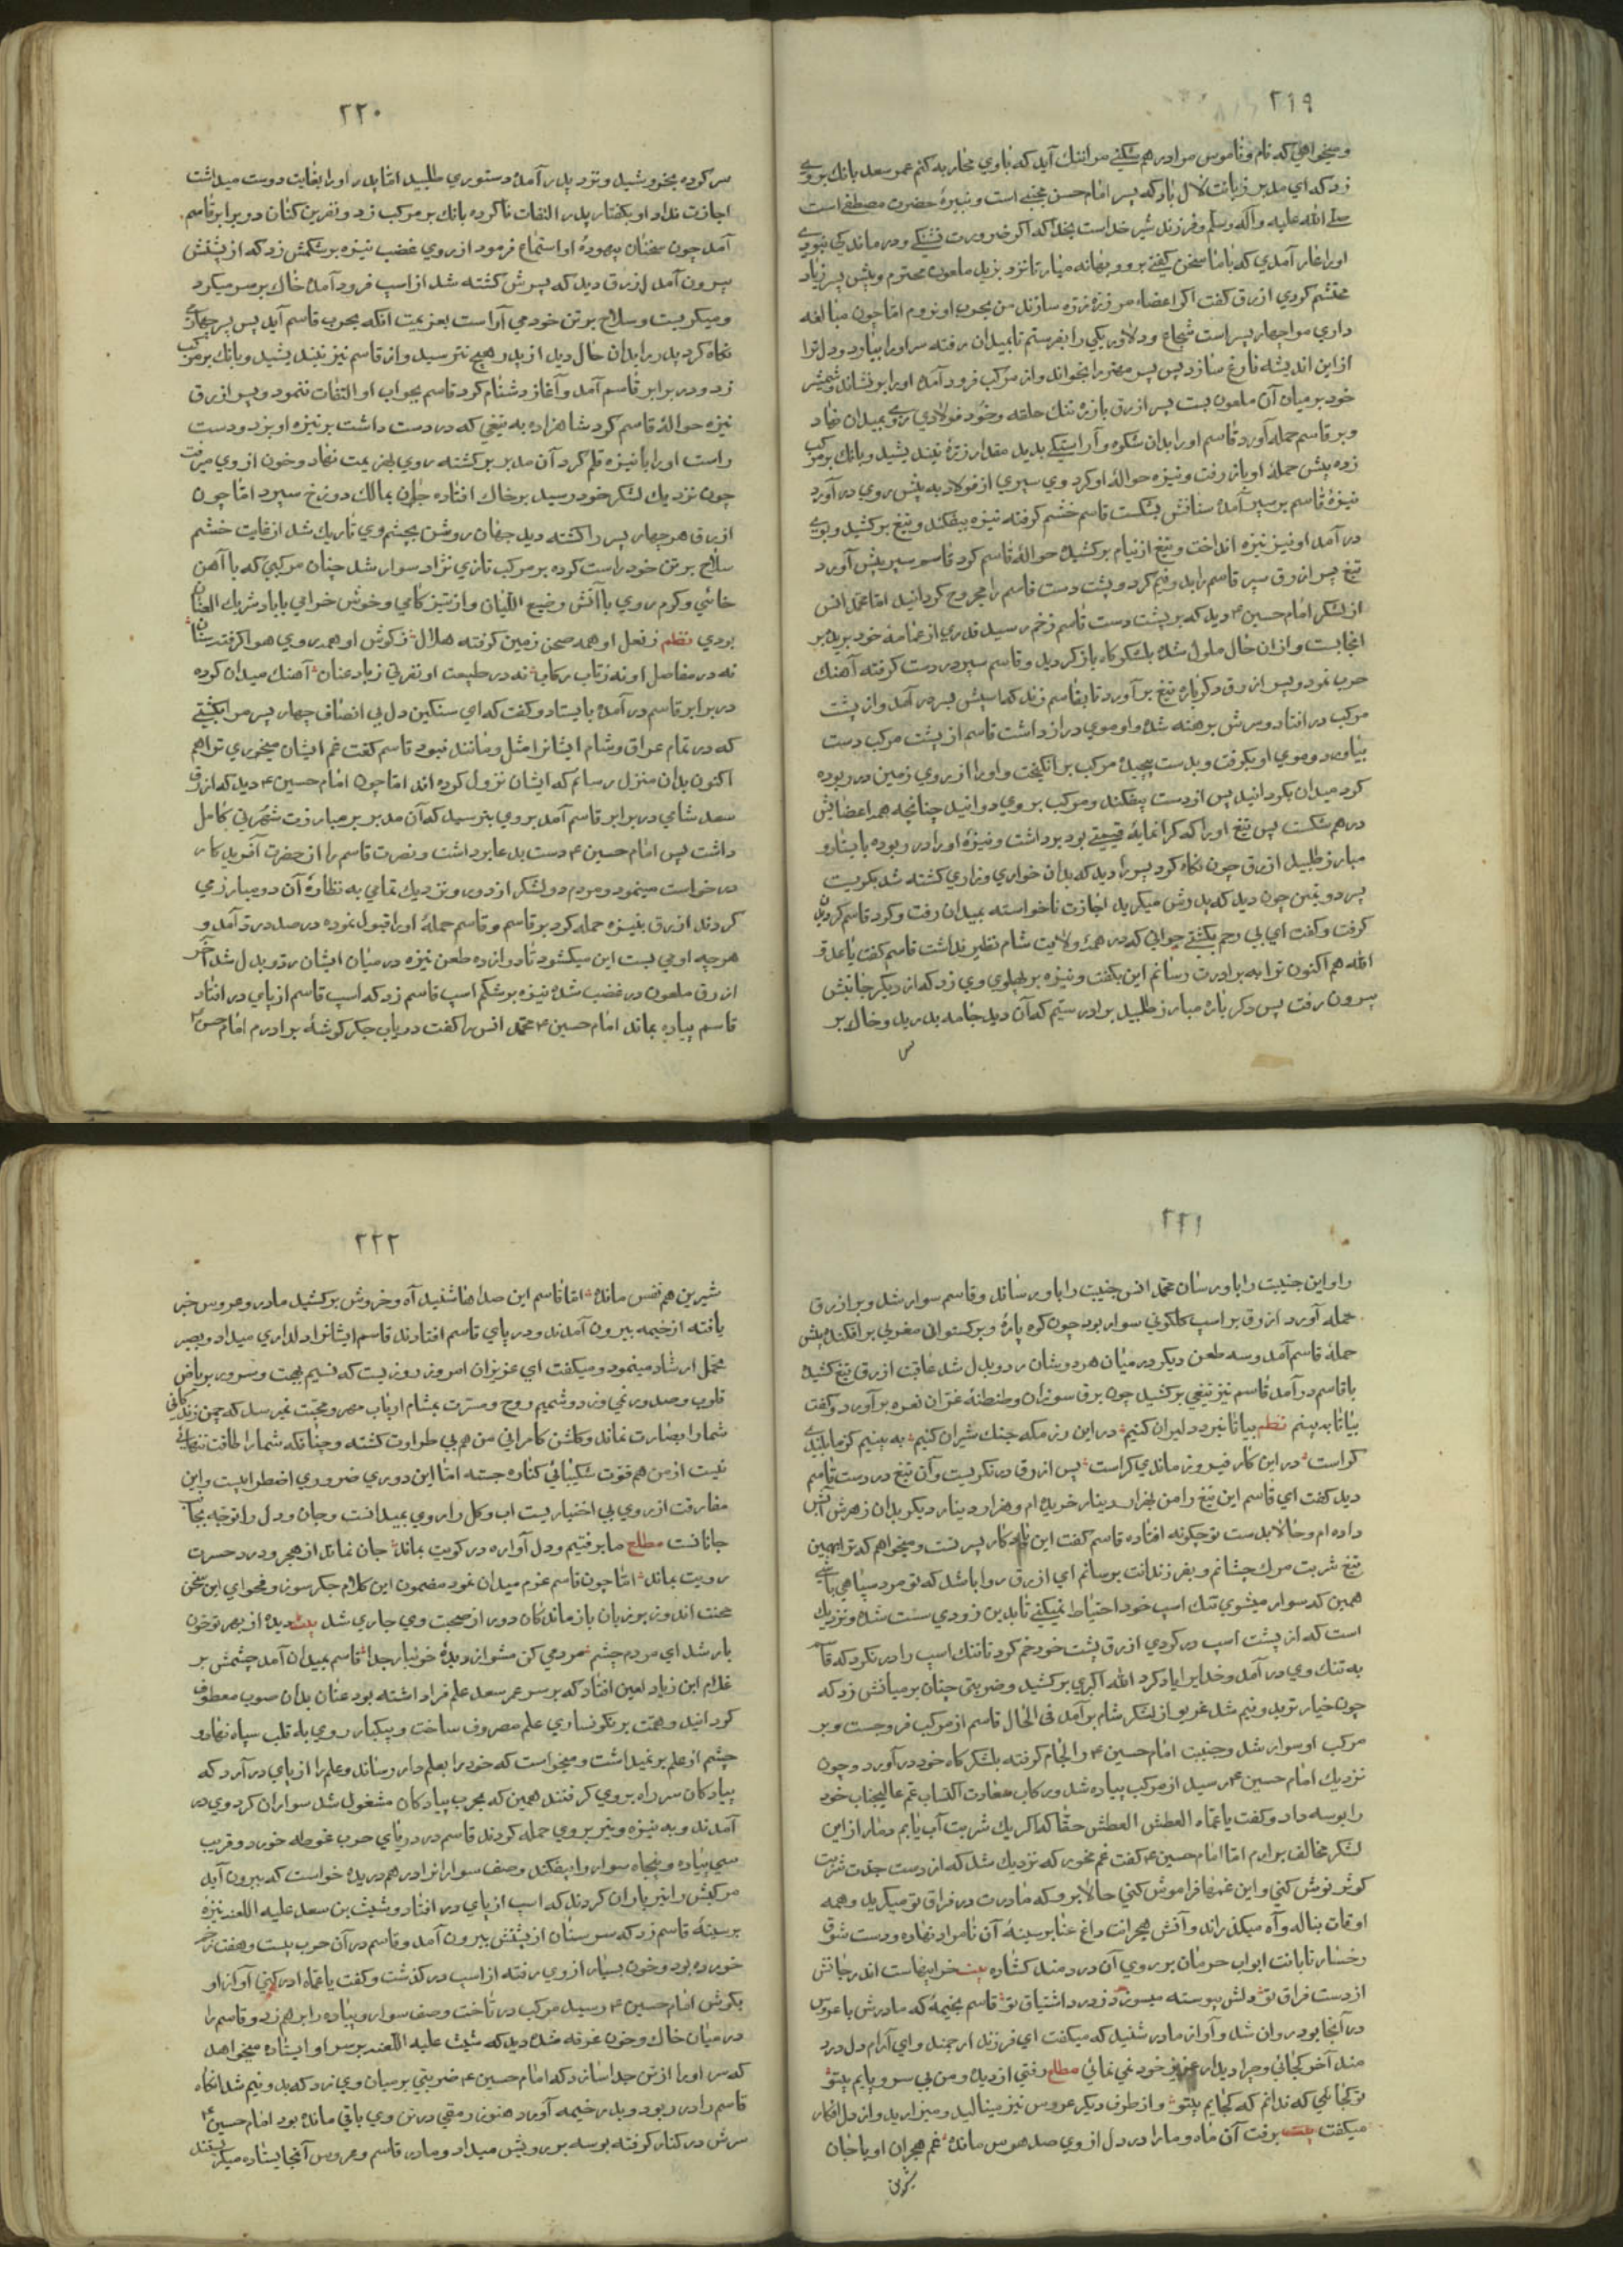 ۲۱۹
و میخواهي که نام و ناموس مرا در هم شکني مرا ننك آید که با وي محاربه کنم عمر سعد بانك بروي
زد که اي مدبر زبانت لال باد که پسر امام حسن مجتبي است و نبیرۀ حضرت مصطفي است
صلے الله علیه وآله وسلم و فرزند شیر خداست بخدا که اکر ضرورت تشنکي و درماندکي نبودي
اورا عار آمدي که با ما سخن کفتي برو و بهانه میار تا نزد یزید ملعون محترم و پیش پسر زیاد
محتشم کردي ازرق کفت اکر اعضاء مرا ذره ذره سازند من بحرب او نروم اما چون مبالغه
داري مرا چهار پسر است شجاع و دلاور یکي را بفرستم تا بمیدان رفته سر اورا بیاورد و دل ترا
از این اندیشه فارغ سازد پس پسر مهتر را بخواند و از مرکب فرود آمد اورا بر نشاند و شمشیر
خود بر میان آن ملعون بست پسر ازرق با زرۀ تنك حلقه و خود فولادي روي بمیدان نهاد
و بر قاسم حمله آورد قاسم اورا بدان شکوه و آراستکي بدید مقدار ذرۀ نیندیشید و بانك بر مرکب
زده پیش حملۀ او باز رفت و نیزه حوالۀ او کرد وي سپري از فولاد به پیش روي در آورد
نیزۀ قاسم بر سپر آمد سنانش بشکست قاسم خشم کرفته نیزه بیفکند و تیغ بر کشید و بوي
در آمد او نیز نیزه انداخت و تیغ از نیام بر کشیده حوالۀ قاسم کرد قاسم سپر پیش آورد
تیغ پسر ازرق سپر قاسم را بدو نیم کرد و پشت دست قاسم را مجروح کردانید اما محمد انس
از لشکر امام حسین ۴ دید که بر پشت دست قاسم زخم رسید قدري از عمامه خود بریده بر
انجا بست و از ان حال ملول شده بلشکرکاه باز کردید و قاسم سپر در دست کرفته آهنك
حرب نمود و پسر ازرق دکرباره تیغ بر آورد تا بقاسم زند که اسپش بسر در آمد و از پشت
مرکب در افتاد و سرش برهنه شد و او موي دراز داشت قاسم از پشت مرکب دست
بیاورد و موي او بکرفت و بدست پیچیده مرکب بر انکیخت و اورا از روي زمین در ربوده
کرد میدان بکردانید پس از دست بیفکند و مرکب بر وي دوانید چنانچه همه اعضایش
در هم شکست پس تیغ اورا که کرانمایۀ قیمتي بود برداشت و نیزۀ اورا در ربوده بایستاد و
مبارز طلبید ازرق چون نکاه کرد پسر را دید که بدان خواري و زاري کشته شد بکریست
پسر دویمین چون دید که پدرش میکرید اجازت ناخواسته بمیدان رفت و کرد قاسم کردیدن
کرفت و کفت اي بي رحم بکشتي جواني که در همۀ ولایت شام نظیر نداشت قاسم کفت یا عدو
الله هم اکنون ترا به برادرت رسانم این بکفت و نیزه بر پهلوي وي زد که از دیکر جانبش
بیرون رفت پس دکر باره مبارز طلبید برادر ستیم که آن دید جامه بدرید و خاك بر
س
۲۲۰
سر کرده بخروشید و نزد پدر آمده دستوري طلبید اما پدر اورا بغایت دوست میداشت
اجازت نداد او بکفتار پدر التفات ناکرده بانك بر مرکب زد و نفرین کنان در برابر قاسم
آمد چون سخنان بیهودۀ او استماع فرمود از روي غضب نیزه بر شکمش زد که از پشتش
بیرون آمد ازرق دید که پسرش کشته شد از اسپ فرود آمد خاك بر سر میکرد
و میکریست و سلاح بر تن خود مي آراست بعزیمت انکه بحرب قاسم آید پس پسر چهارمي
نکاه کرد پدر را بدان حال دید از پدر هیچ نترسید و از قاسم نیز نیندیشید و بانك بر مرکب
زد و در برابر قاسم آمد و آغاز دشنام کرد قاسم بجواب او التفات ننمود و پسر ازرق
نیزه حوالۀ قاسم کرد شاهزاده به تیغي که در دست داشت بر نیزه او بزد و دست
راست اورا با نیزه قلم کرد آن مدبر بر کشته روي بهزیمت نهاد و خون از وي میرفت
چون نزدیك لشکر خود رسید بر خاك افتاده جان بمالك دوزخ سپرد اما چون
ازرق هر چهار پسر را کشته دید جهان روشن بچشم وي تاریك شد از غایت خشم
سلاح بر تن خود راست کرده بر مرکب تازي نژاد سوار شد چنان مرکبي که با آهن
خائي و کرم روي با آتش رضیع اللبان و از تیز کامي و خوش خرامي با باد شریك العنان
بودي نظم ز نعل او همه صحن زمین کرفته هلال ز کوش او همه روي هوا کرفته سنان
نه در مفاصل او نه ز تاب رکاب نه در طبیعت او نفرتي ز باد عنان آهنك میدان کرده
در برابر قاسم در آمده بایستاد و کفت که اي سنکین دل بي انصاف چهار پسر مرا بکشتي
که در تمام عراق و شام ایشانرا مثل و مانند نبود قاسم کفت غم ایشان میخوري ترا هم
اکنون بدان منزل رسانم که ایشان نزول کرده اند اما چون امام حسین ۴ دید که ازرق
سعد شامي در برابر قاسم آمد بر وي بترسید که آن مدبر بر مبارزت شهرتي کامل
داشت پس امام حسین ۴ دست بدعا برداشت و نصرت قاسم را از حضرت آفریدکار
در خواست مینمود و مردم دو لشکر از دور و نزدیك تمامي به نظارۀ آن دو مبارز مي
کردند ازرق بنیزه حمله کرد بر قاسم و قاسم حملۀ اورا قبول نموده در صدد رد آمد و
هر چه او مي بست این میکشود تا دوازده طعن نیزه در میان ایشان رد و بدل شد آخر
ازرق ملعون در غضب شده نیزه بر شکم اسپ قاسم زد که اسپ قاسم از پاي در افتاد
قاسم پیاده بماند امام حسین ۴ محمد انس را کفت دریاب جکر کوشۀ برادرم امام حسن ۴
۲۲۱
را و این جنیبت را باو رسان محمد انس جنیبت را باو رساند و قاسم سوار شد و بر ازرق
حمله آورد ازرق بر اسپ کلکوني سوار بود چون کوه پارۀ و برکستواني مغربي بر افکنده پیش
حملۀ قاسم آمد و سه طعن دیکر در میان هردوشان رد و بدل شد عاقبت ازرق تیغ کشیده
با قاسم در آمد قاسم نیز تیغي بر کشید چون برق سوزان و طنطنۀ غران نعره بر آورد و کفت
بیا تا به بینم نظم بیا تا نبرد دلیران کنیم در این رزمکه جنك شیران کنیم به بینیم کز ما بلندي
کراست در این کار فیروزمندي کراست پس ازرق در نکریست و آن تیغ در دست قاسم
دید کفت اي قاسم این تیغ را من بهزار دینار خریده ام و هزار دینار دیکر بدان زهرش آب
داده ام و حالا بدست تو چکونه افتاده قاسم کفت این یادکار پسر تست و میخواهم که ترا بهمین
تیغ شربت مرك چشانم و بفرزندانت برسانم اي ازرق روا باشد که تو مرد سپاهي باشي
همین که سوار میشوي تنك اسپ خود احتیاط نمیکني تا بدین زودي سست شده و نزدیك
است که از پشت اسپ در کردي ازرق پشت خود خم کرد تا تنك اسپ را در نکرد که قاسم
به تنك وي در آمد و خدایرا یاد کرد الله اکبري بر کشید و ضربتي چنان بر میانش زد که
چون خیار تر بدو نیم شد غریو از لشکر شام بر آمد في الحال قاسم از مرکب فرو جست و بر
مرکب او سوار شد و جنیبت امام حسین ۴ را لجام کرفته بلشکرکاه خود در آورد و چون
نزدیك امام حسین ۴ رسید از مرکب پیاده شد و رکاب سعادت اکتساب عم عالیجناب خود
را بوسه داد و کفت یا عماه العطش العطش حقا که اکر یك شربت آب یابم دمار از این
لشکر مخالف برارم اما امام حسین ۴ کفت غم مخور که نزدیك شد که از دست جدت شربت
کوثر نوش کني و این غمها فراموش کني حالا برو که مادرت در فراق تو میکرید و همه
اوقات بناله و آه میکذراند و آتش هجرانت داغ عنا بر سینۀ آن نامراد نهاده و دست شوق
رخسار تابانت ابواب حرمان بر روي آن دردمند کشاده بیت خرابهاست اندر جانش
از دست فراق تو دلش پیوسته میسوزد ز درد اشتیاق تو قاسم بخیمۀ که مادرش با عروس
در آنجا بود روان شد و آواز مادر شنید که میکفت اي فرزند ارجمند و اي آرام دل درد
مند آخر کجائي و چرا دیدار عزیز خود نمي نمائي مطلع رفتي از دیده و من بي سر و پایم بیتو
تو کجائي که ندانم که کجایم بیتو و از طرف دیکر عروس نیز مینالید و میزارید و از دل افکار
میکفت بیت برفت آن ماه و مارا در دل از وي صد هوس مانده غم هجران او با جان
شیرین
۲۲۲
شیرین هم نفس مانده اما قاسم این صداها شنید آه و خروش بر کشید مادر و عروس خبر
یافته از خیمه بیرون آمدند و در پاي قاسم افتادند قاسم ایشانرا دلداري میداد و بصبر
تحمل ارشاد مینمود و میکفت اي عزیزان امروز روزیست که نسیم بهجت و سرور بر ریاض
قلوب و صدور نمي وزد و شمیم روح و مسرت بمشام ارباب مهر و محبت نمیرسد که چمن زندکاني
شمارا بضارت نماند و کلشن کامراني من هم بي طراوت کشته و چنانکه شمارا طاقت تنهائي
نیست از من هم قوت شکیبائي کناره جسته اما این دوري ضروري اضطراریست و این
مفارقت از روي بي اختیاریست اب و کل را روي بمیدانست و جان و دل را توجه بجانب
جانانست مطلع ما برفتیم و دل آواره در کویت بماند جان نماند از هجر و درد حسرت
رویت بماند اما چون قاسم عزم میدان نمود مضمون این کلام جکر سوز و فحواي این سخن
محنت اندوز بر زبان بازماندکان دور از صحبت وي جاري شد بیت دیده از بهر تو خون
بار شد اي مردم چشم مردمي کن مشو از دیدۀ خونبار جدا قاسم بمیدان آمد چشمش بر
غلام ابن زیاد لعین افتاد که بر سر عمر سعد علم فرا داشته بود عنان بدان صوب معطوف
کردانید و همت بر نکونساري علم مصروف ساخت و یکبار روي به قلب سپاه نهاد و
چشم از علم بر نمیداشت و میخواست که خود را بعلمدار رساند و علم را از پاي در آرد که
پیادکان سر راه بر وي کرفتند همین که بحرب پیادکان مشغول شد سواران کرد وي در
آمدند و به نیزه و تیر بر وي حمله کردند قاسم در دریاي حرب غوطه خورد و قریب
سي پیاده و پنجاه سوار را بیفکند و صف سوارانرا در هم دریده خواست که بیرون آید
مرکبش را تیر باران کردند که اسپ از پاي در افتاد و شیث بن سعد علیه اللعنه نیزۀ
بر سینۀ قاسم زد که سر سنان از پشتش بیرون آمد و قاسم در آن حرب بیست و هفت زخم
خورده بود و خون بسیار از وي رفته از اسپ در کذشت و کفت یا عماه ادرکني آواز او
بکوش امام حسین ۴ رسید مرکب در تاخت و صف سوار و پیاده را بر هم زد و قاسم را
در میان خاك و خون غرقه شده دید که شیث علیه اللعنه بر سر او ایستاده میخواهد
که سر اورا از تن جدا سازد که امام حسین ۴ ضربتي بر میان وي زد که بدو نیم شد انکاه
قاسم را در ربود و بدر خیمه آورد هنوز رمقي در تن وي باقي مانده بود امام حسین ۴
سرش در کنار کرفته بوسه بر رویش میداد و مادر قاسم و عروس آنجا ایستاده میکریستند